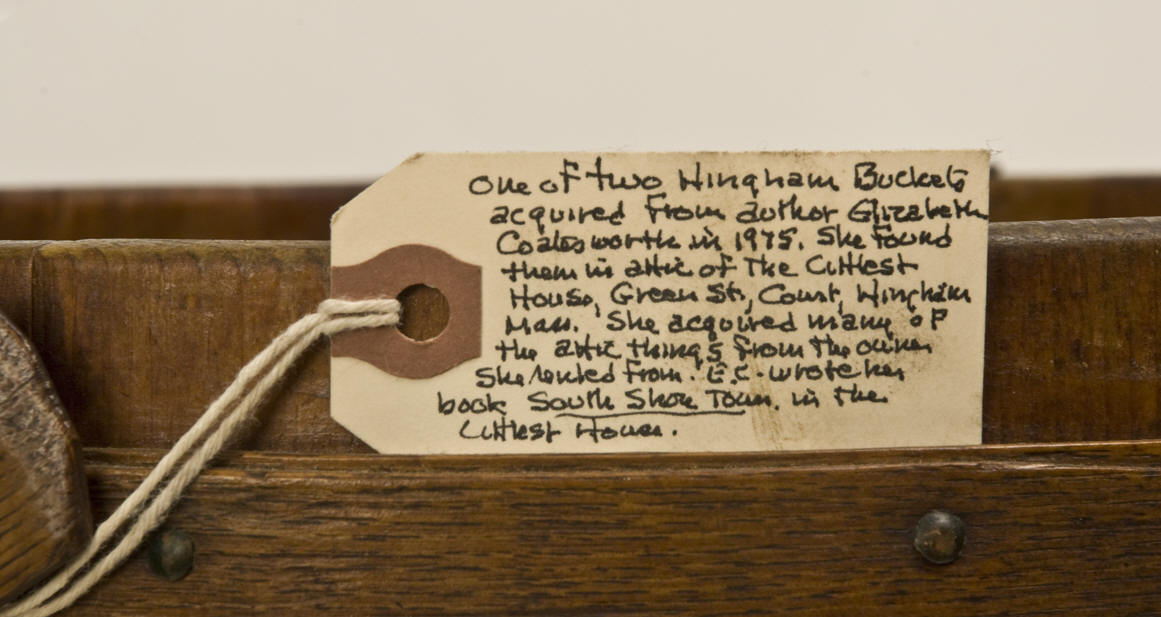 One of two Hingham Buckets
acquired from author Elizabeth
Coatesworth in 1975. She found
them in attic of The Littlest
House, Green St., Court, Hingham
Mass. She acquired many of
the attic things from the owner
She rented from. E.C. wrote her
book South Shore Town. in the
Littlest House.